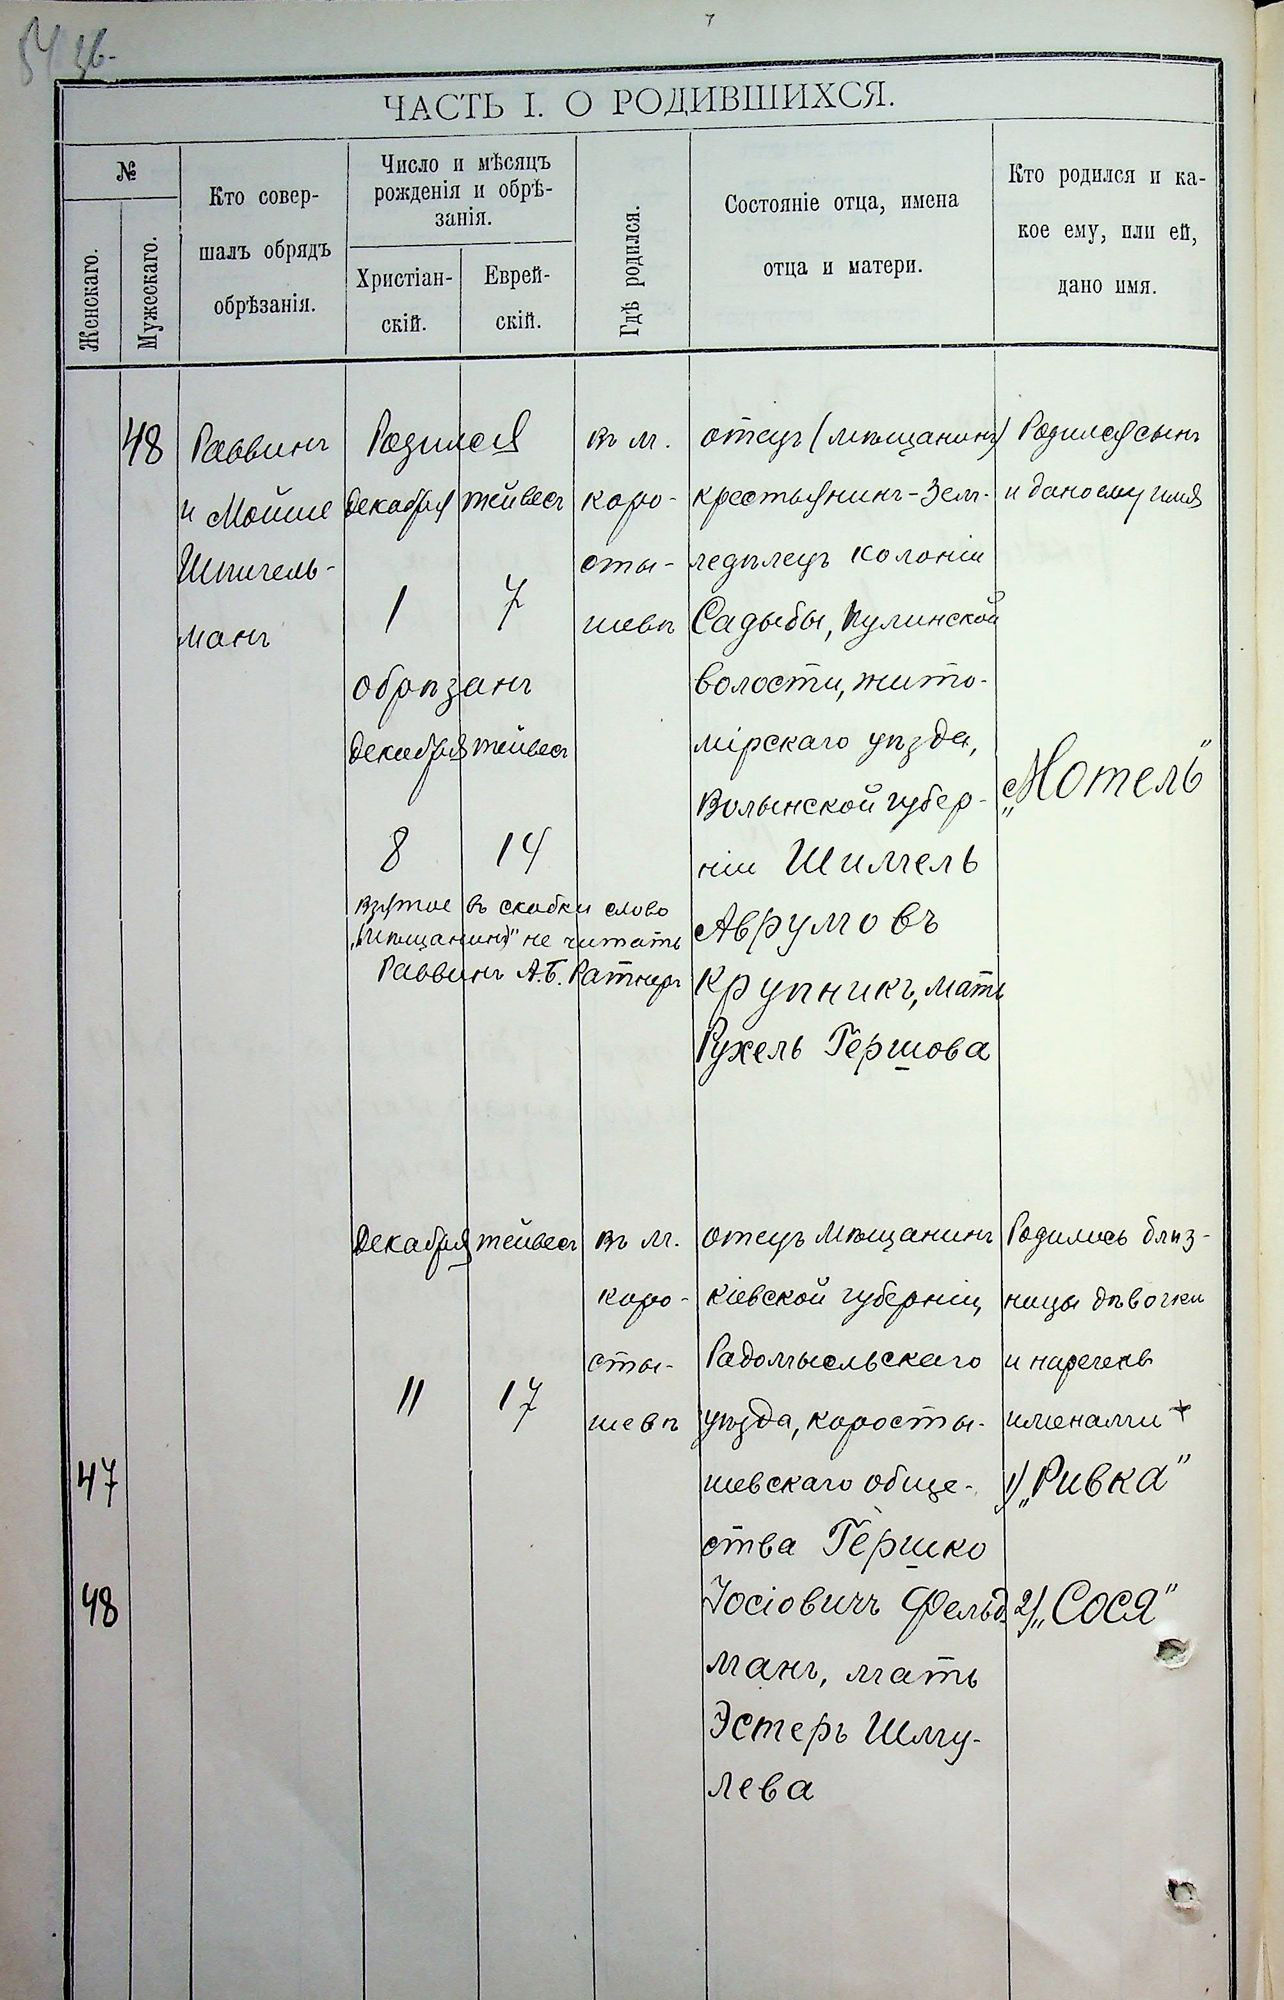 54 об.
ЧАСТЬ I. О РОДИВШИХСЯ.
№
Женскаго.
Мужескаго.
Кто совер-
шалъ обрядъ
обрѣзанія.
Число и мѣсяцъ
рожденія и обрѣ-
занія.
Христіан-
скій.
Еврей-
скій.
Гдѣ родился.
Состояніе отца, имена
отца и матери.
Кто родился и ка-
кое ему, или ей,
дано имя.
48
Раввинъ
и Мойше
Шпигель-
манъ
Родился
декабря тейвесъ
1 7
обрѣзанъ
декабря тейвесъ
8 14
взятое въ скобки слово
„(мѣщанинъ)" не читать
Раввинъ А.Б. Ратнеръ
въ м.
коро-
сты-
шевѣ
отецъ (мѣщанинъ)
крестьянинъ-зем-
ледѣлецъ колоніи
Садыбы, Пулинской
волости, жито-
мірскаго уѣзда,
Волынской губер-
ніи Шимчель
Аврумовъ
Крупникъ, мать
Рухель Гершова
Родился сынъ
и дано ему имя
„Мотель"
47
48
декабря тейвесъ
11 17
въ м.
коро-
сты-
шевѣ
отецъ мѣщанинъ
кіевской губерніи,
Радомысльскаго
уѣзда, коросты-
шевскаго обще-
ства Гершко
Іосіовичъ Фельд-
манъ, мать
Эстеръ Шму-
лева
Родились близ-
ницы дѣвочки
и наречены
именами
1) „Ривка"
2) „Сося"